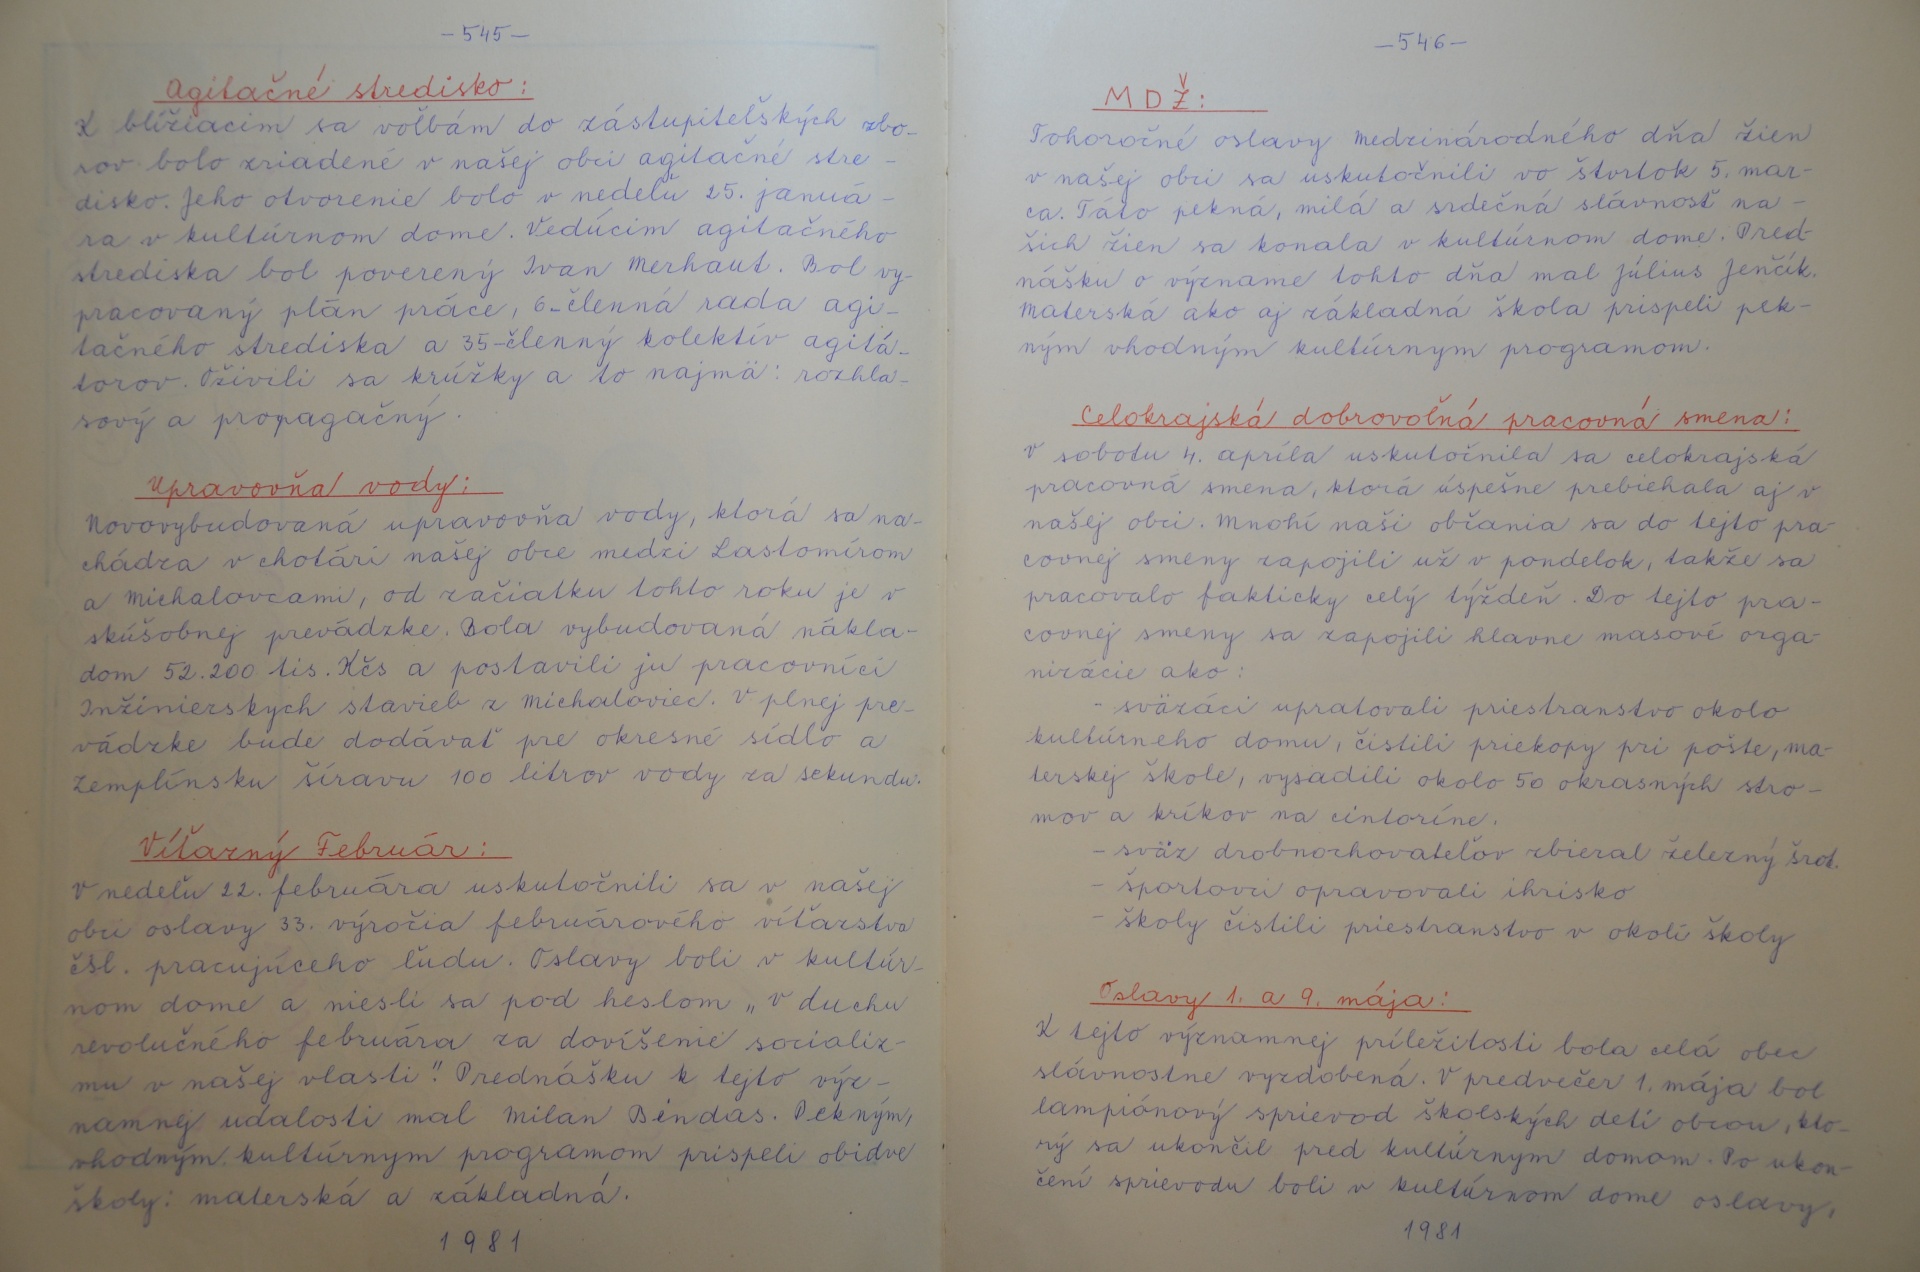 -545-
Agitačné stredisko:
K blížiacim sa voľbám do zástupiteľských zbo-
rov bolo zriadené v našej obci agitačné stre-
disko. Jeho otvorenie bolo v nedeľu 25. januá-
ra v kultúrnom dome. Vedúcim agitačného
strediska bol poverený Ivan Merhaut. Bol vy-
pracovaný plán práce, 6-členná rada agi-
tačného strediska a 35-členný kolektív agitá-
torov. Oživili sa krúžky a to najmä: rozhla-
sový a propagačný.
Upravovňa vody:
Novovybudovaná upravovňa vody, ktorá sa na-
chádza v chotári našej obce medzi Lastomírom
a Michalovcami, od začiatku tohto roku je v
skúšobnej prevádzke. Bola vybudovaná nákla-
dom 52.200 tis. Kčs a postavili ju pracovníci
Inžinierskych stavieb z Michaloviec. V plnej pre-
vádzke bude dodávať pre okresné sídlo a
Zemplínsku šíravu 100 litrov vody za sekundu.
Víťazný Február:
V nedeľu 22. februára uskutočnili sa v našej
obci oslavy 33. výročia februárového víťazstva
čsl. pracujúceho ľudu. Oslavy boli v kultúr-
nom dome a niesli sa pod heslom „V duchu
revolučného februára za dovŕšenie socializ-
mu v našej vlasti". Prednášku k tejto výz-
namnej udalosti mal Milan Bindas. Pekným,
vhodným kultúrnym programom prispeli obidve
školy: materská a základná.
1981
-546-
MDŽ:
Tohoročné oslavy Medzinárodného dňa žien
v našej obci sa uskutočnili vo štvrtok 5. mar-
ca. Táto pekná, milá a srdečná slávnosť na-
šich žien sa konala v kultúrnom dome. Pred-
nášku o význame tohto dňa mal Július Jenčík.
Materská ako aj základná škola prispeli pek-
ným vhodným kultúrnym programom.
Celokrajská dobrovoľná pracovná smena:
V sobotu 4. apríla uskutočnila sa celokrajská
pracovná smena, ktorá úspešne prebiehala aj v
našej obci. Mnohí naši občania sa do tejto pra-
covnej smeny zapojili už v pondelok, takže sa
pracovalo fakticky celý týždeň. Do tejto pra-
covnej smeny sa zapojili hlavne masové orga-
nizácie ako:
- sväzáci upratovali priestranstvo okolo
kultúrneho domu, čistili priekopy pri pošte, ma-
terskej škole, vysadili okolo 50 okrasných stro-
mov a kríkov na cintoríne.
- sväz drobnochovateľov zbieral železný šrot.
- športovci opravovali ihrisko
- školy čistili priestranstvo v okolí školy
Oslavy 1. a 9. mája:
K tejto významnej príležitosti bola celá obec
slávnostne vyzdobená. V predvečer 1. mája bol
lampiónový sprievod školských detí obcou, kto-
rý sa ukončil pred kultúrnym domom. Po ukon-
čení sprievodu boli v kultúrnom dome oslavy,
1981